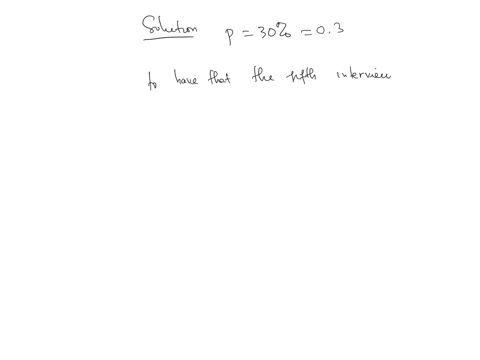 Solution p = 30% = 0.3
to have that the fifth interview